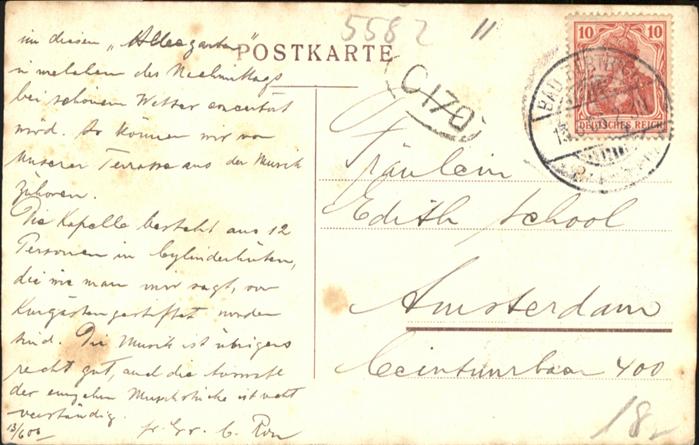 5582
11
POSTKARTE
im diesen „Alleegarten"
in welchem des Nachmittags
bei schönem Wetter concertirt
wird. So können wir von
unserer Terrasse aus der Musik
zuhören.
Die Kapelle besteht aus 12
Personen in Cylinderhüten,
die wie man mir sagt, von
Kurgästen gestiftet worden
sind. Die Musik ist übrigens
recht gut, auch die
der einzelnen Musikstücke ist
verständig.
13/6 06
C170
10 10
DEUTSCHES REICH
BAD
Fräulein
Edith School
Amsterdam
Ceintuurbaan 400
18-